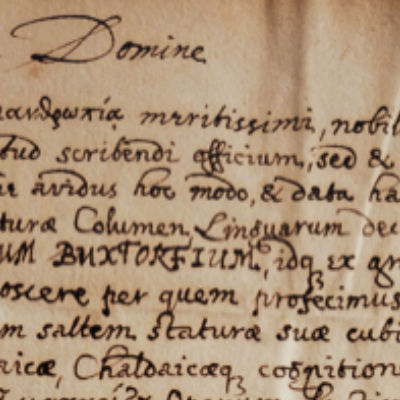 Domine
ανθρωπίᾳ meritissimi, nobil
tud scribendi officium, sed &
avidus hoc modo, & data ha
turæ Columen Linguarum dec
UM BUXTORFIUM, idq ex gr
oscere per quem profecimus
m saltem staturæ suæ cubi
aicæ, Chaldaicæq cognition